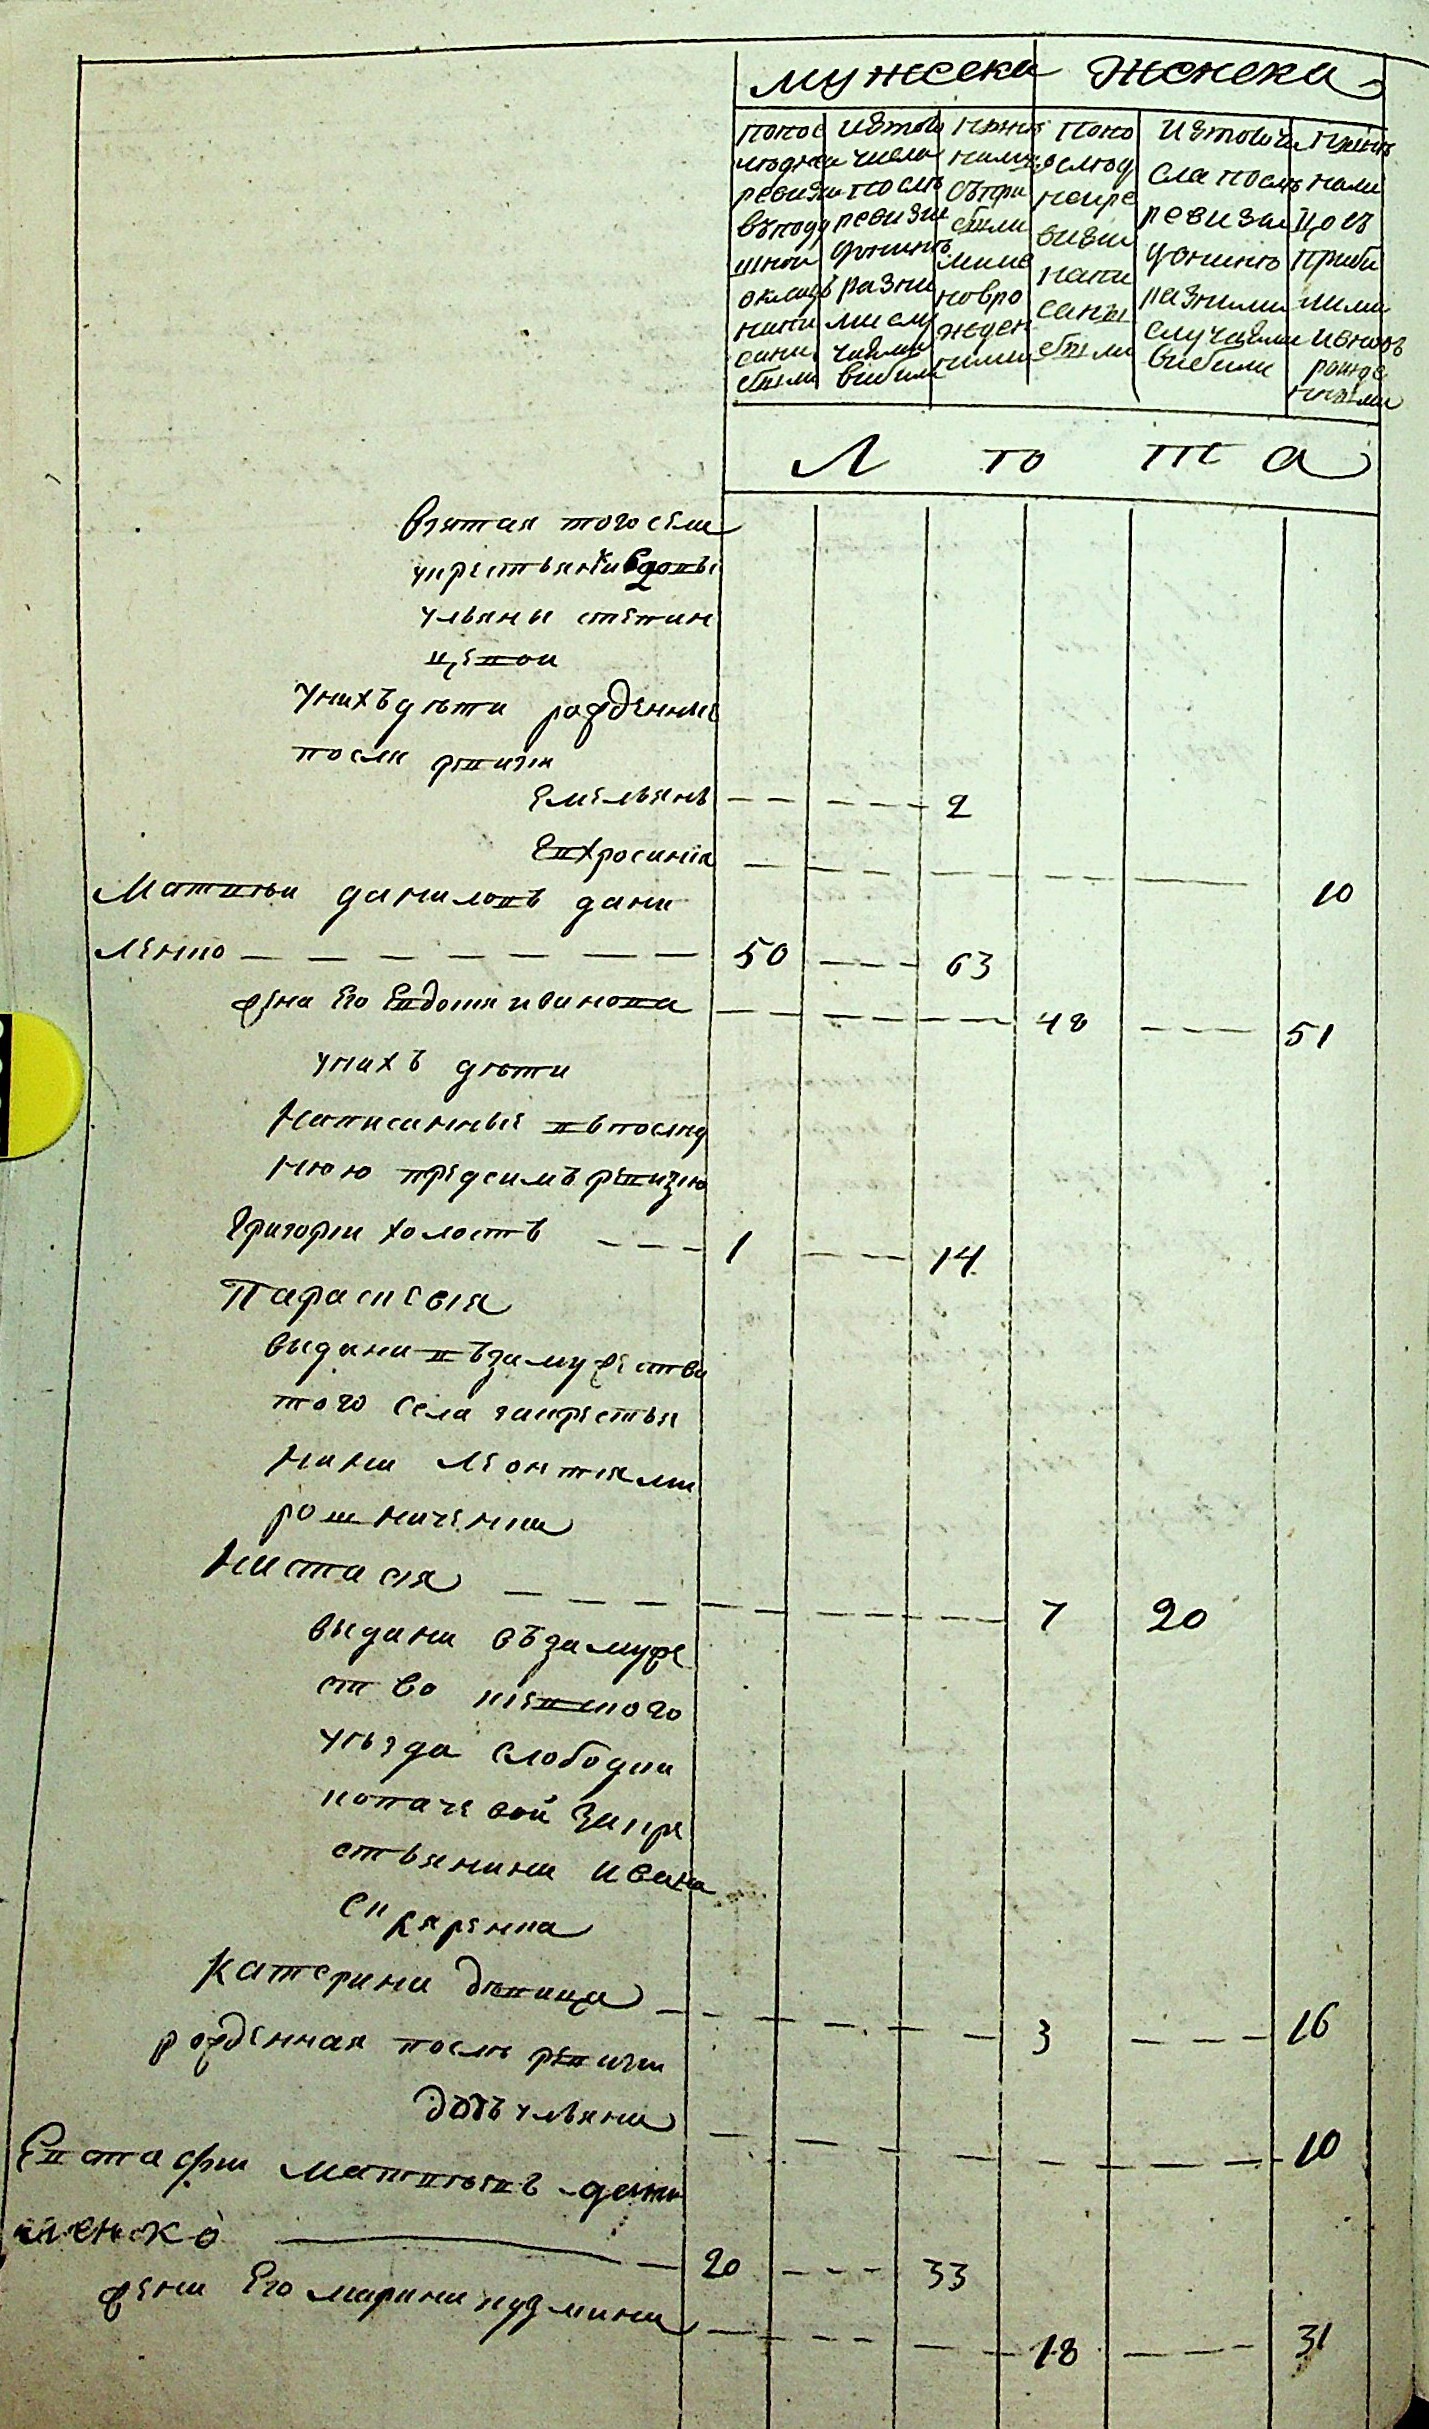 мужеска женска
по пос
ледней
ревизии
въ поду
шной
окладъ
напи
саны
были
изъ того
числа
посль
ревизии
до нинь
разни
ми слу
чаями
выбыли
нынь
на лицо
съ при
были
ми и
новоро
жден
ними
по по
след
ней ре
визии
напи
саны
были
изъ того чи
сла посль
ревизии
до нинь
разними
случаями
выбили
нинь
нали
цо съ
приби
лими
и вновь
рожде
нными
Л ъ т а
взятая того села
у крестьянки вдовы
ульяны степан
цевой
у нихъ дьти рожденные
после ревизии
емельянъ 2
Евхросиния 10
Матвьи даниловъ дани
ленко 50 63
жена Его Евдокия иванова 48 51
у нихъ дьти
написанныя въ послед
нюю предсимъ ревизию
Григории холостъ 1 14
Параскевия
выдана въ замужество
того села за крестья
нина леонтия ми
рошниченка
Настасия 7 20
выдана въ замуже
ство киевского
уьзда слободки
копачевой за кре
стьянина ивана
Катерина дьвица 3 16
рожденная посль ревизии
дочь ульяна 10
Евстафи матвьевъ дани
ленко 20 33
жена Его марина кузмина 18 31